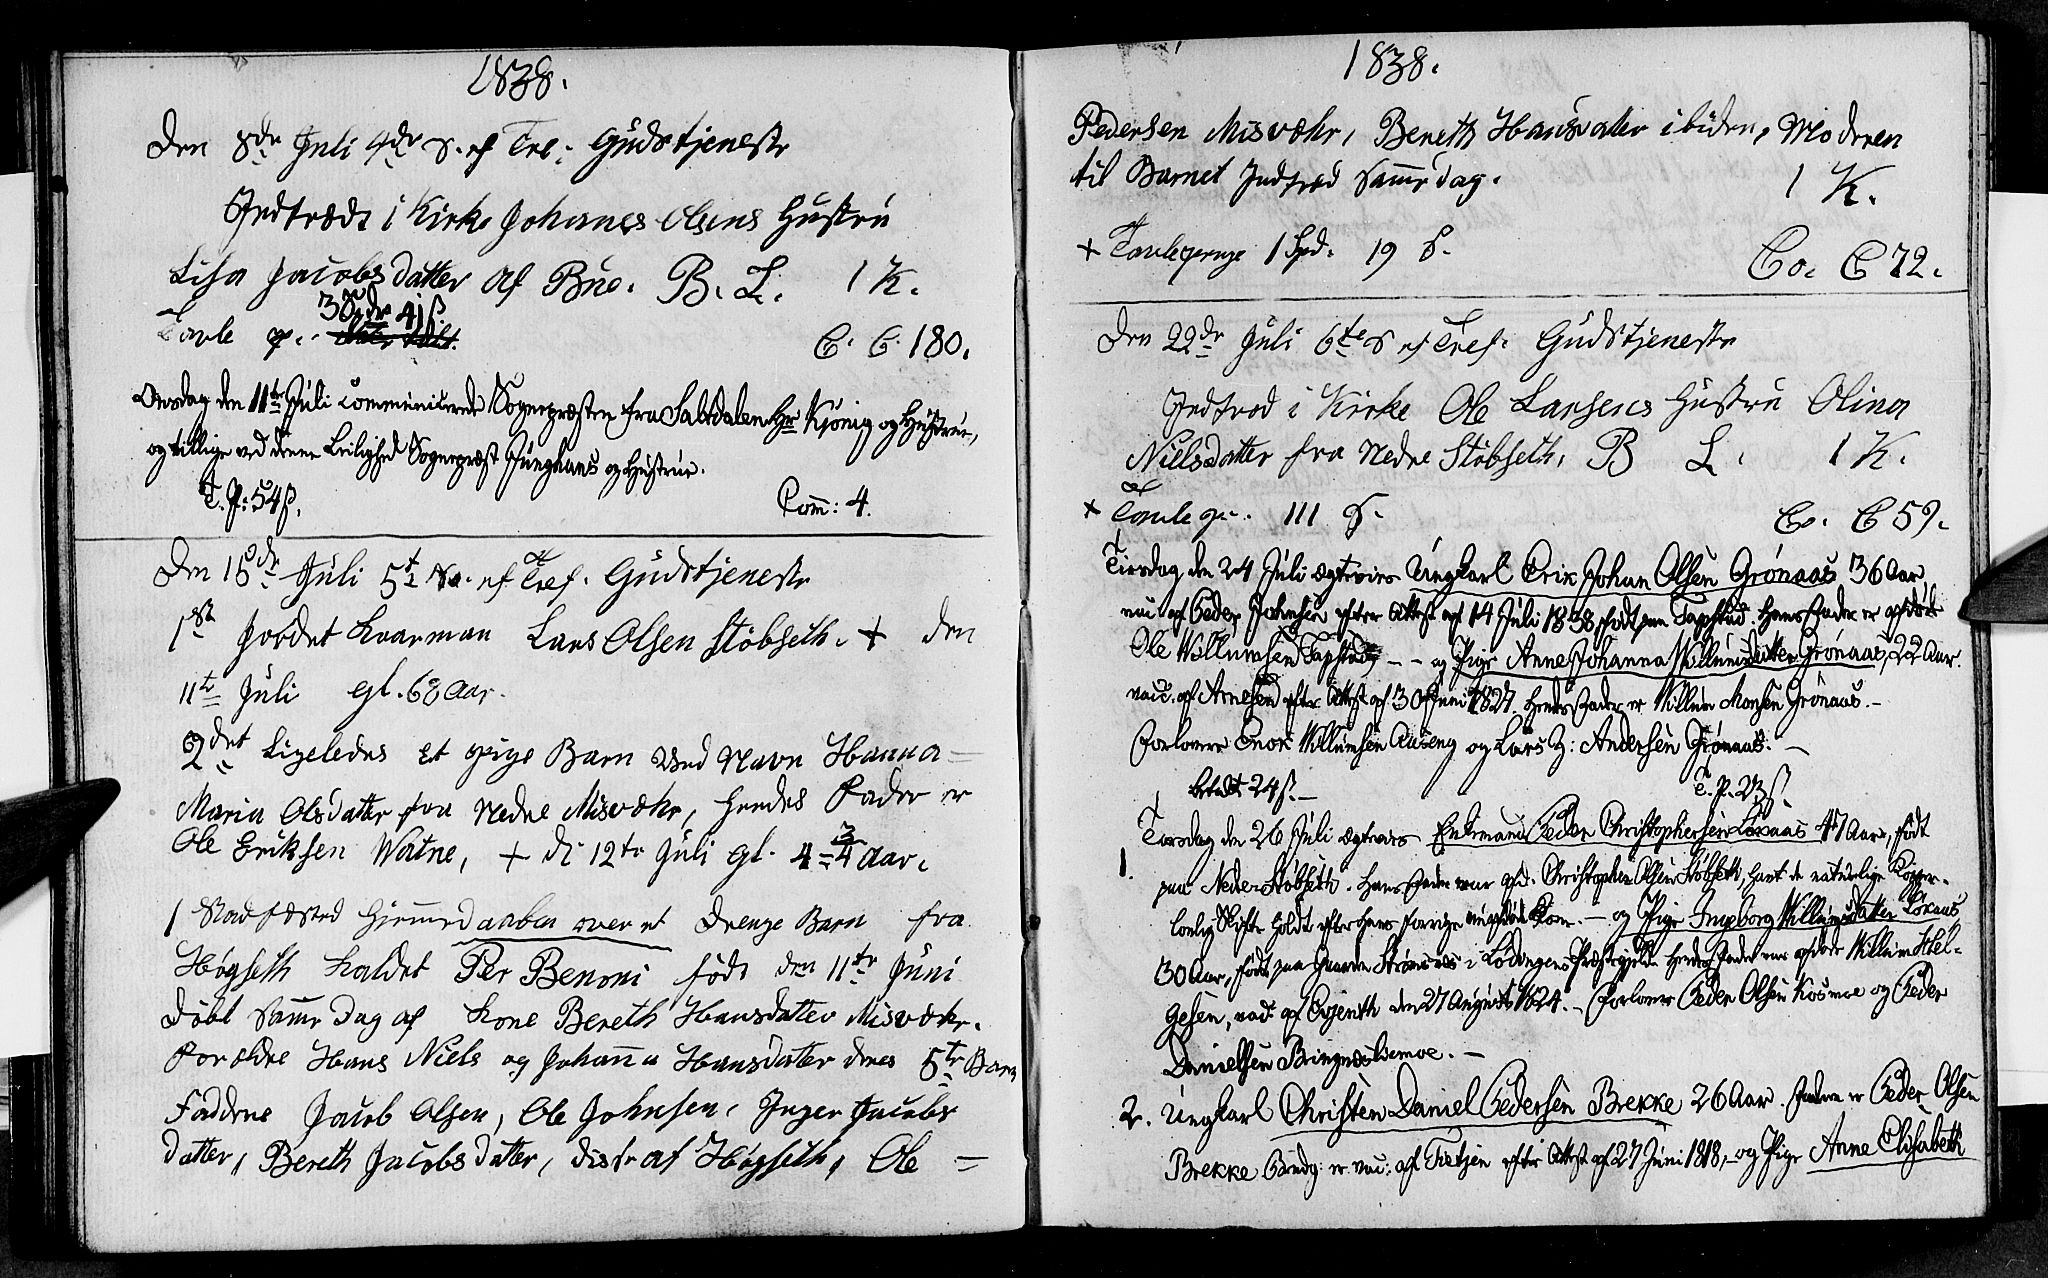 1838.
Den 8de Juli 4de S. ef Tre: Gudstjeneste
Indtrædt i Kirke Johanes Olsens Hustru
Lisa Jacobsdatter af Bue. B. L. 1 K.
Tavle p. 30 41 ß
C. C. 180.
Onsdag den 11te Juli communicerede Sognepræsten fra Saltdalen Hr Kjönig og Hustrue,
og tillige ved denne Leilighed Sognepræst Junghans og Hustrue.
T. P: 54 ß. Com̄: 4.
Den 15de Juli 5te S. ef Tref. Gudstjeneste
1st Jordet Kaarman Lars Olsen Støbseth. + den
11te Juli gl. 68 Aar.
2det Ligeledes et pige Barn ved Navn Hanna
Maria Olsdatter fra Nedre Misvæhr, hendes Fader er
Ole Eriksen Watne, + d: 12te Juli gl. 4 3/4 Aar.
1 Stadfæsted hjemmedaaben over et Drenge Barn fra
Høgseth kaldet Per Benoni född den 11te Juni
døbt samme Dag af Kone Bereth Hansdatter Misvæhr.
Forældre Hans Niels og Johanna Hansdatter deres 5te Barn
Faddere Jacob Olsen, Ole Johnsen, Inger Jacobs
datter, Bereth Jacobsdatter, disse af Høgseth, Ole =
1838.
Pedersen Misvæhr, Bereth Hansdatter ibiden, Moderen
til Barnet Indtræd samme dag. 1 K.
+ Tavlepenge 1 Spd. 19 ß. Co. C 72.
Den 22de Juli 6te S ef Tref. Gudstjeneste
Indtræd i Kirke Ole Larsens Hustru Olina
Nielsdatter fra Nedre Støbseth, B L. 1 K.
+ Tavle p. 111 ß. Co. C 59.
Tirsdag den 24 Juli ægtevies Ungkarl Erik Johan Olsen Grönaas 36 Aar,
vac: af Peder Johnsen efter Attest af 14 Juli 1838, född paa Tapstad. Hans Fader er afdøde
Ole Willumsen Tapstad, -- og Pige Anne Johanna Willumsdatter Grönaas, 22 Aar.
vacc. af Arnesen efter Attest af 30 Juni 1827. Hendes Fader er Willum Monsen Grönaas. -
Forlovere Enok Willumsen Aaseng og Lars Z: Andersen Grönaas. -
betalt 24 ß. - T. P. 23 ß.
Torsdag den 26 Juli ægtevies
1. Enkemand Peder Christophersen Loxaas 47 Aar, født
paa Neder Støbseth. Hans Fader var afd. Christopher Olsen Støbseth, havt de naturlige Kopper.
lovlig Skifte holdt efter hans forrige afdøde Kone. - og Pige Ingeborg Willumsdatter Loxaas,
30 Aar, född paa Gaarden Strömnæs i Lödingens Præstegjeld. Hendes Fader var afdøde Willum Hel-
gesen, vac: af den 27 August 1824. - Forlovere Peder Olsen Kosmoe og Peder
Danielsen Bringsliemoe. -
2. Ungkarl Christen Daniel Pedersen Brekke 26 Aar. Fadren er Peder Olsen
Brekke Gaardm: er vac: af Tietjen efter Attest af 27 Juni 1818, - og Pige Anne Elisabeth